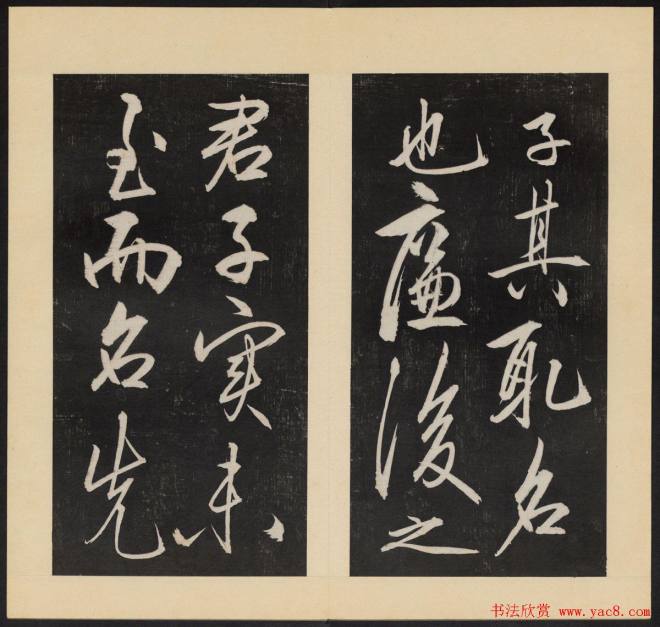 子其取名
也廉後之
君子实未
至而名先
书法欣赏 www.yac8.com